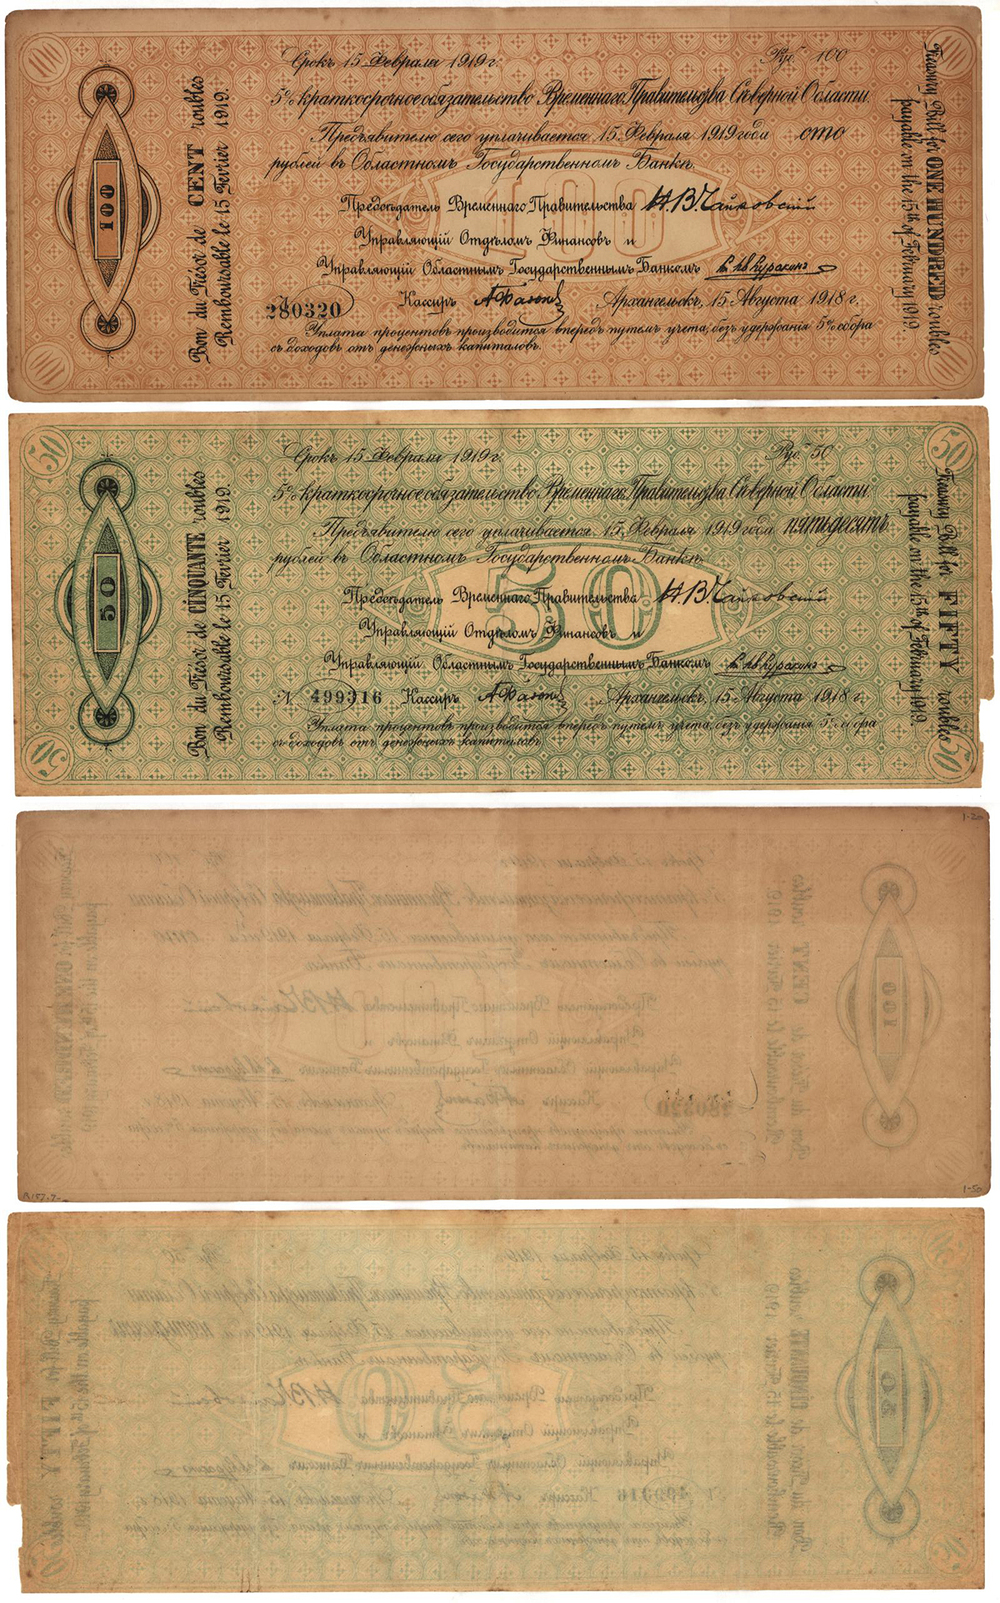 100
Bon du Trésor de CENT roubles
Remboursable le 15 Fevrier 1919.
Срокъ 15 Февраля 1919 г. Руб. 100
5% краткосрочное обязательство Временнаго Правительства Сѣверной Области.
Предъявителю сего уплачивается 15 Февраля 1919 года сто
рублей въ Областномъ Государственномъ Банкѣ.
100
Предсѣдатель Временнаго Правительства Н.В. Чайковскiй
Управляющiй Отдѣломъ Финансовъ и
Управляющiй Областнымъ Государственнымъ Банкомъ
280320 Кассиръ Архангельскъ, 15 Августа 1918 г.
Уплата процентовъ производится впередъ путемъ учета, безъ удержанiя 5% сбора
съ доходовъ отъ денежныхъ капиталовъ.
Treasury Bill for ONE HUNDRED roubles
payable on the 15th of February 1919.
50
50
Bon du Trésor de CINQUANTE roubles
Remboursable le 15 Fevrier 1919.
Срокъ 15 Февраля 1919 г. Руб. 50
5% краткосрочное обязательство Временнаго Правительства Сѣверной Области.
Предъявителю сего уплачивается 15 Февраля 1919 года пятьдесятъ
рублей въ Областномъ Государственномъ Банкѣ.
50
Предсѣдатель Временнаго Правительства Н.В. Чайковскiй
Управляющiй Отдѣломъ Финансовъ и
Управляющiй Областнымъ Государственнымъ Банкомъ
№ 499316 Кассиръ Архангельскъ, 15 Августа 1918 г.
Уплата процентовъ производится впередъ путемъ учета, безъ удержанiя 5% сбора
съ доходовъ отъ денежныхъ капиталовъ.
Treasury Bill for FIFTY roubles
payable on the 15th of February 1919.
50
50
50
1-20
1-50